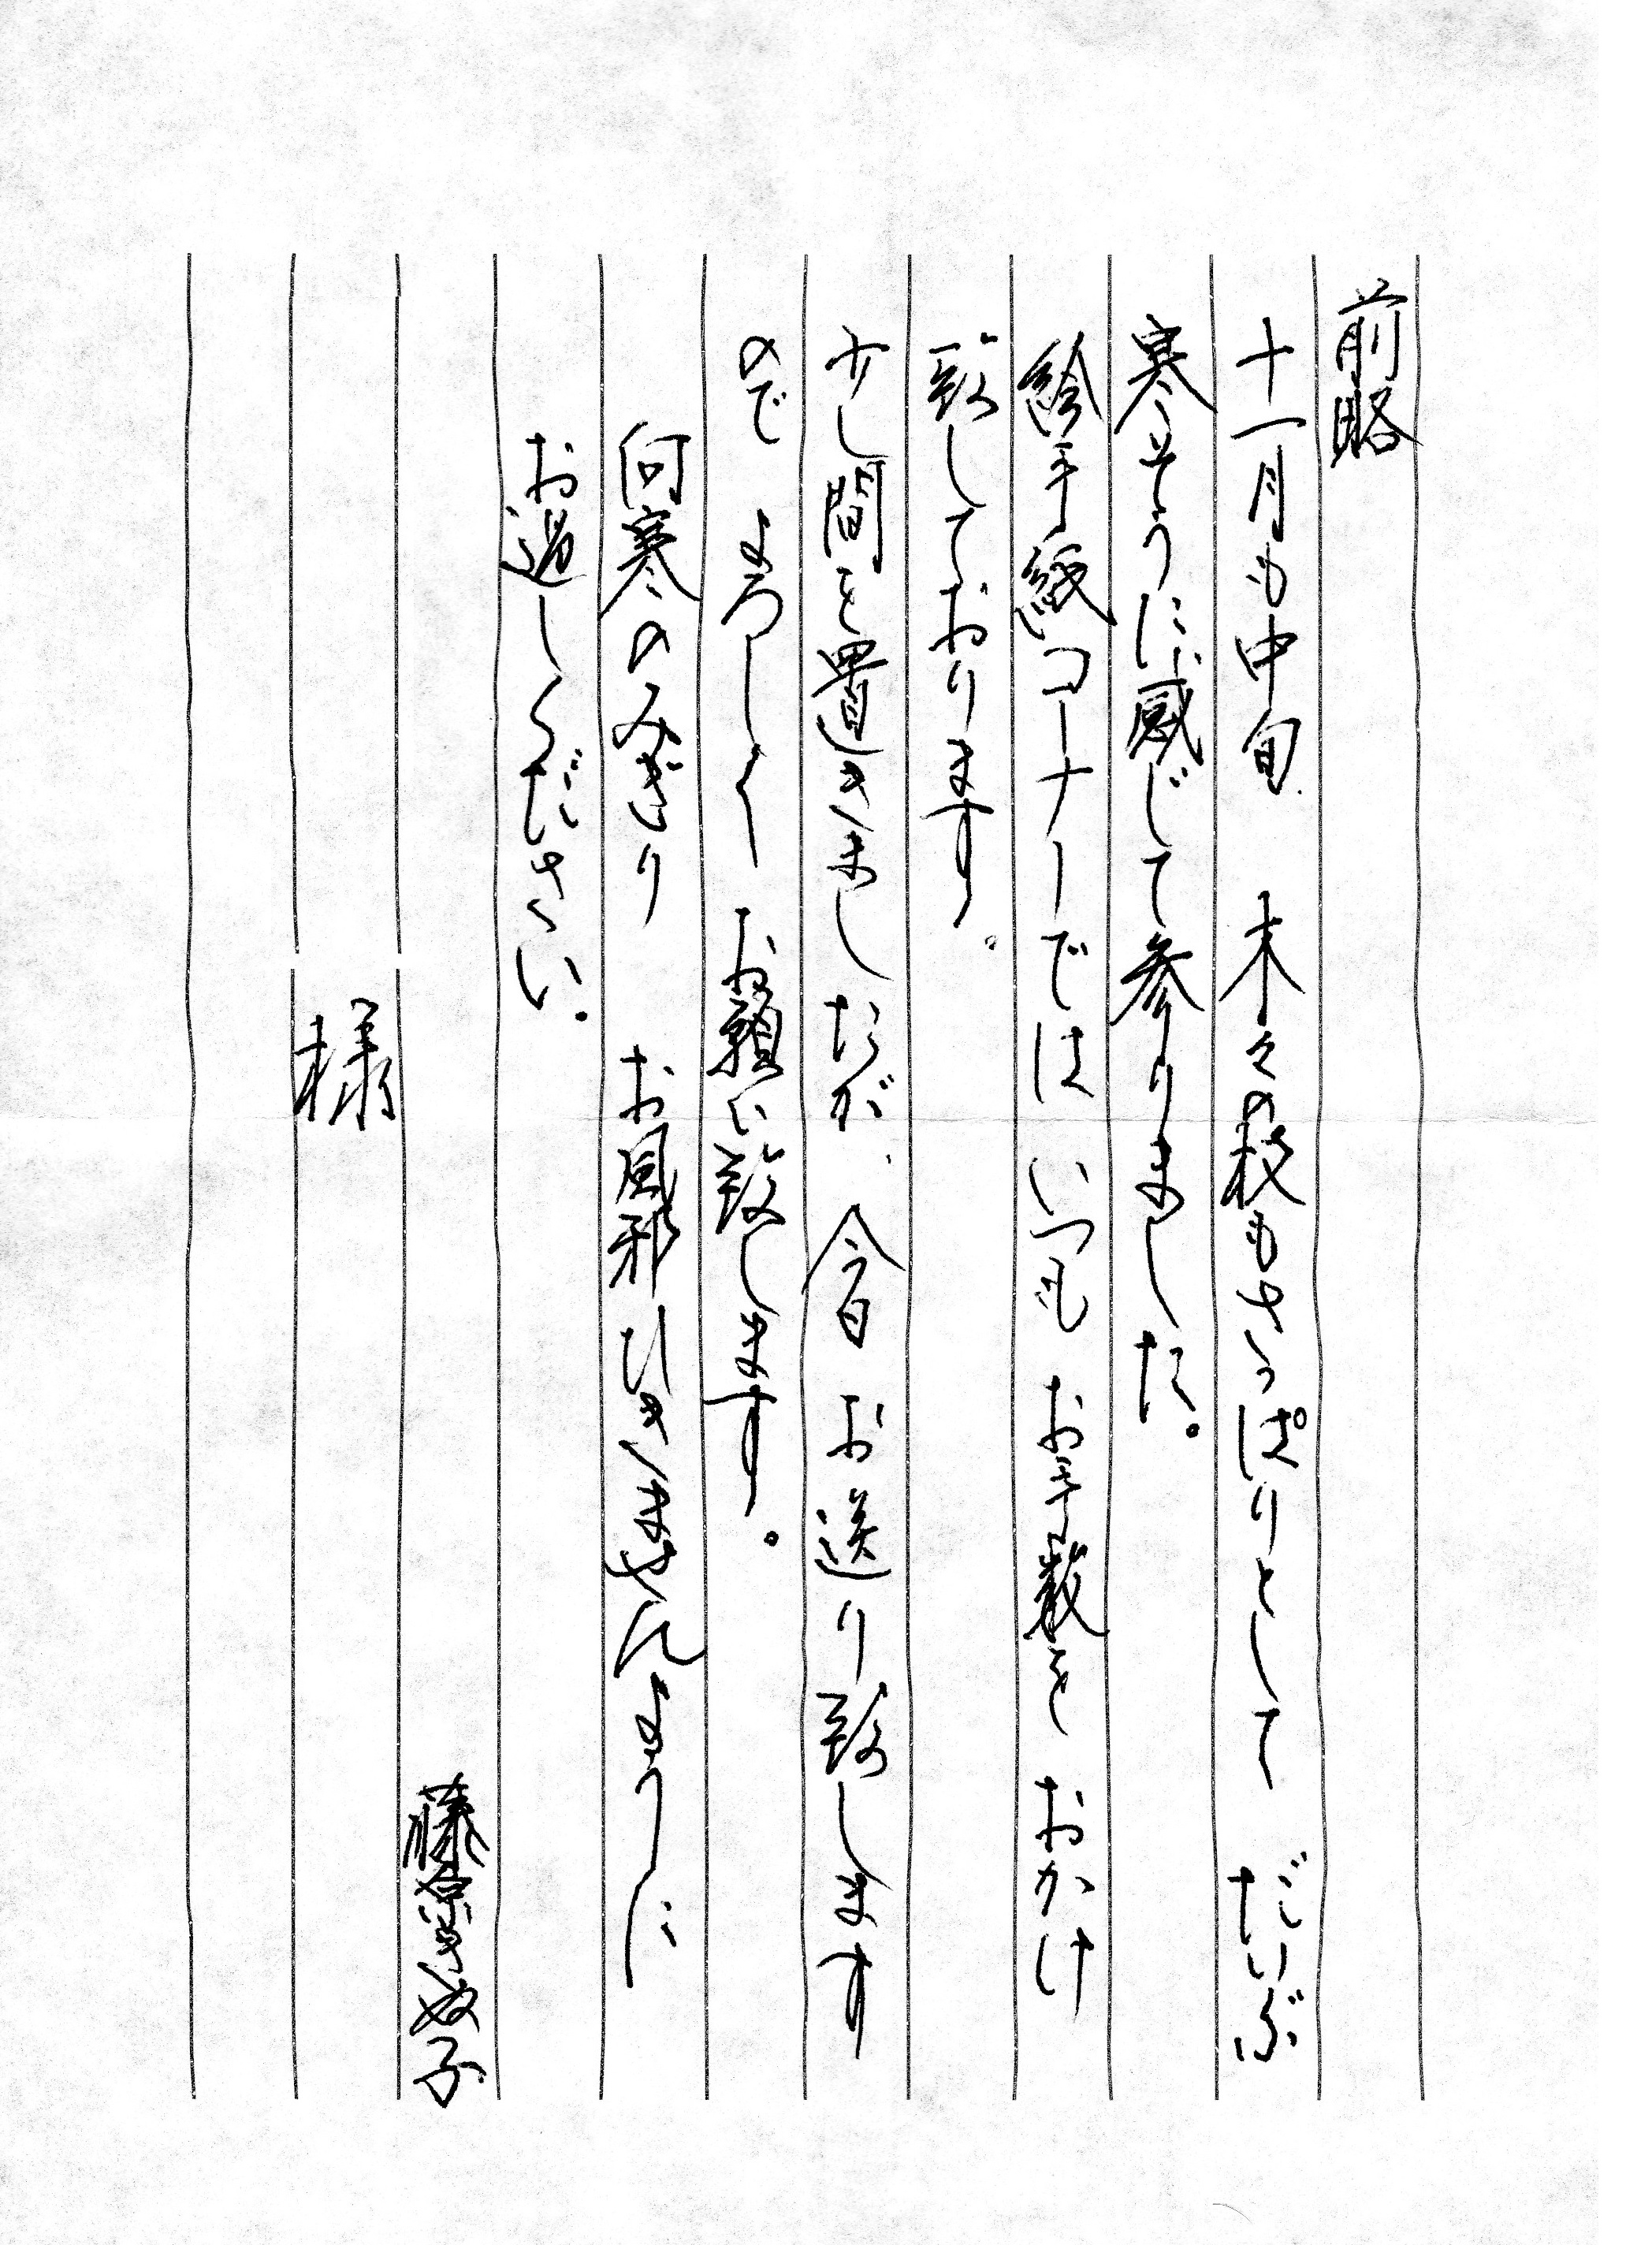 前略
十一月も中旬 木々の枝もさっぱりとして だいぶ
寒そうに感じて参りました。
絵手紙コーナーでは いつも お手数を おかけ
致しております。
少し間を置きましたが、今日 お送り致します
ので よろしく お願い致します。
向寒のみぎり お風邪ひきませんように
お過しください。
子
様